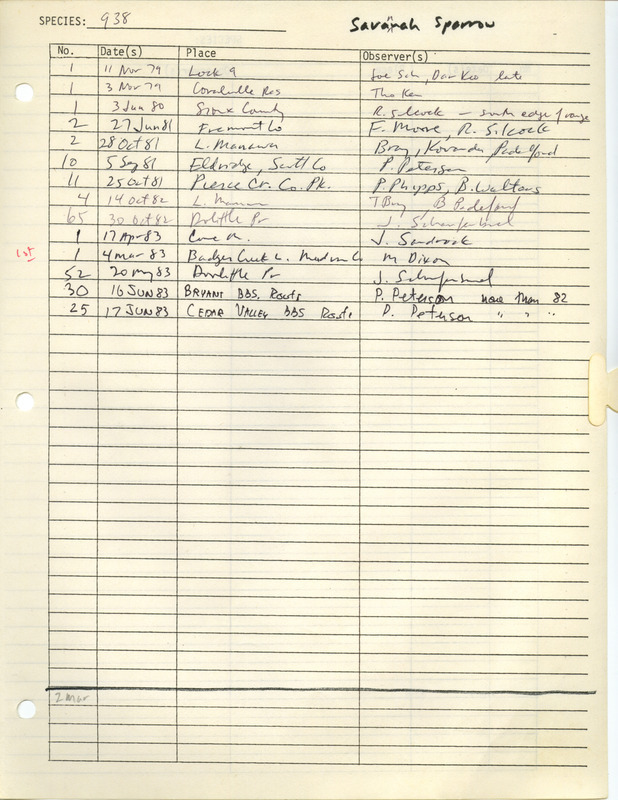 SPECIES: 938 Savanah Sparrow
No. Date(s) Place Observer(s)
1 11 Nov 79 Lock 9 late
1 3 Nov 79 Coralville Res
1 3 Jun 80 Sioux County R. Silcock — south edge of range
2 27 Jun 81 Fremont Co F. Moore, R. Silcock
2 28 Oct 81 L. Manawa Bray, Padelford
10 5 Sep 81 Eldridge, Scott Co P. Petersen
11 25 Oct 81 Pierce Cr. Co. Pk. P. Phipps, B. Walters
4 14 Oct 82 L. T Bray B Padelford
65 30 Oct 82 Doolittle Pr J.
1 17 Apr 83 J. Sandrock
1st 1 4 mar 83 Badger Creek L. M Dixon
52 20 may 83 Doolittle Pr J.
30 16 JUN 83 BRYANT BBS, Route P. Petersen more than 82
25 17 JUN 83 CEDAR VALLEY BBS Route P. Petersen " " "
2 mar